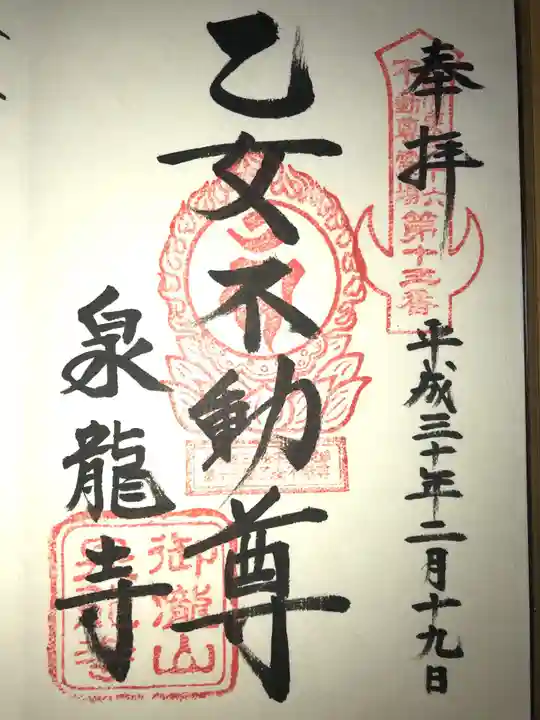 奉拝
不動尊霊場
第十三番
平成三十年二月十九日
乙女不動尊
泉龍寺
御瀧山
泉龍寺